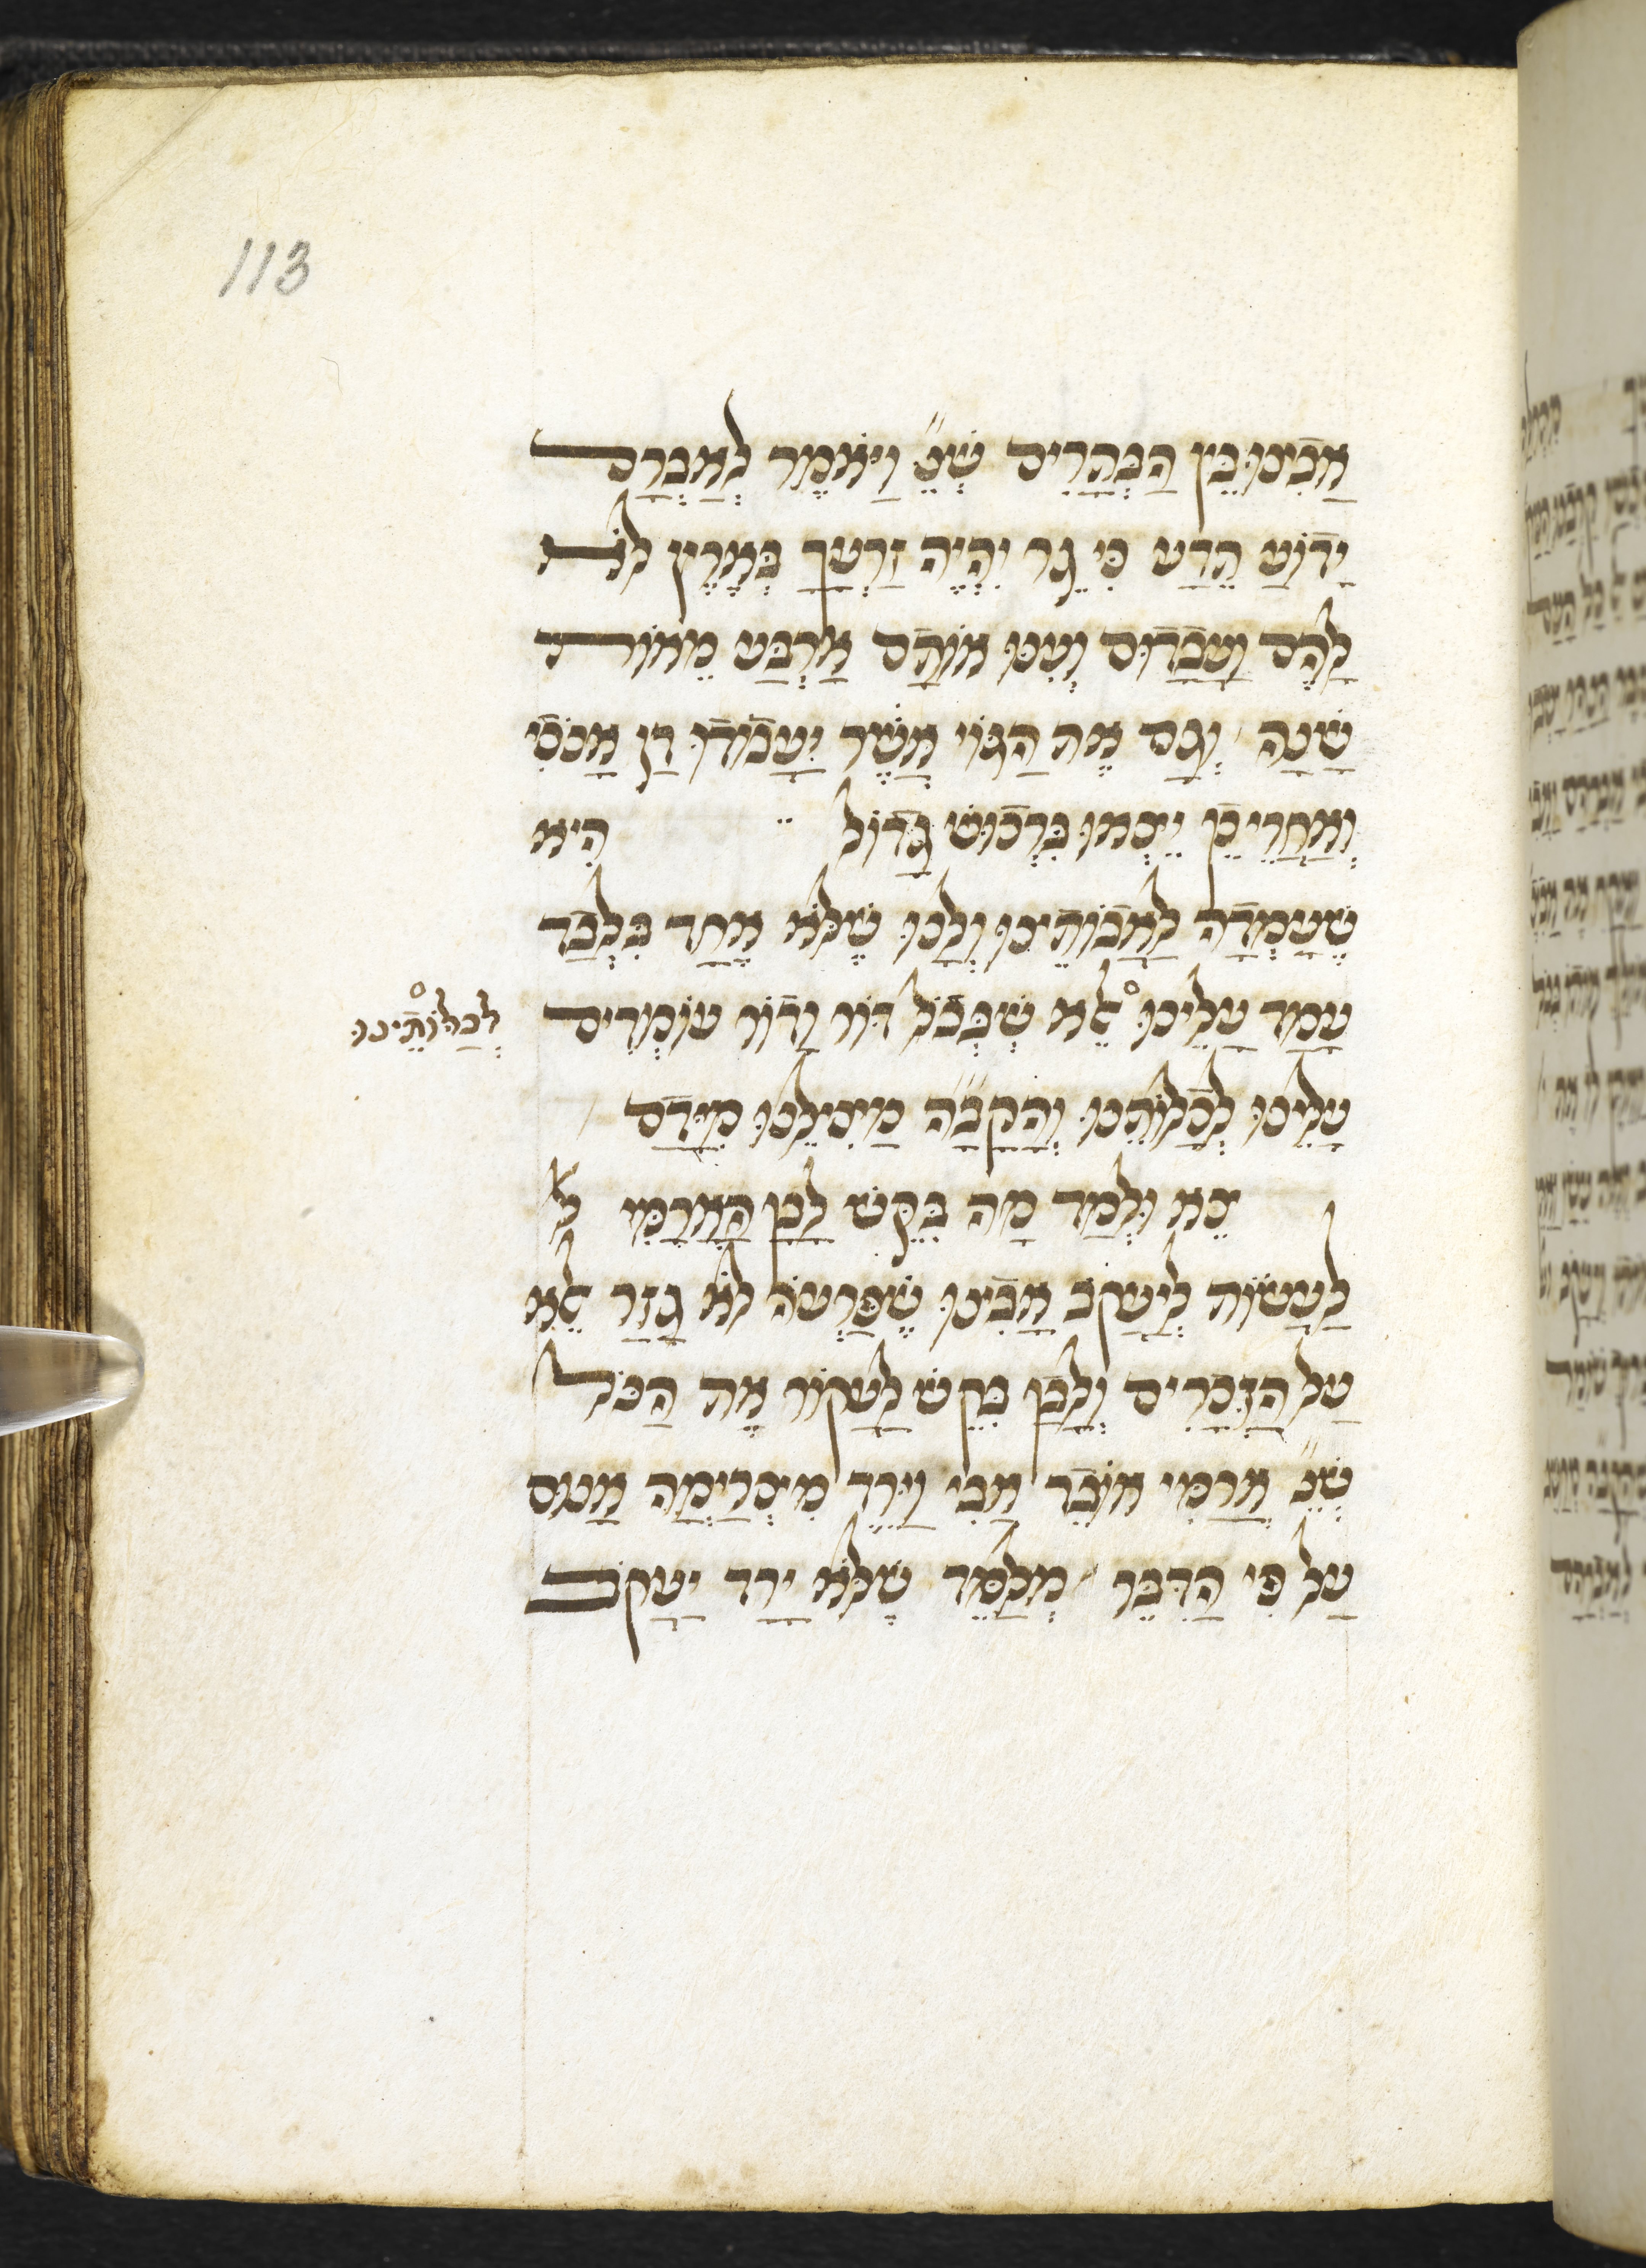 113
אָבִינוּ בֵּין הַבְּתָרִים שֶׁנֶּ״ וַיֹּאמֶר לְאַבְרָם
יָדוֹעַ תֵּדַע כִּי גֵר יִהְיֶה זַרְעֲךָ בְּאֶרֶץ לֹא
לָהֶם וַעֲבָדוּם וְעִנּוּ אוֹתָם אַרְבַּע מֵאוֹת
שָׁנָה וְגַם אֶת הַגּוֹי אֲשֶׁר יַעֲבֹדוּ דָּן אָנֹכִי
וְאַחֲרֵי כֵן יֵצְאוּ בִּרְכוּשׁ גָּדוֹל הִיא
שֶׁעָמְדָה לַאֲבוֹתֵינוּ וְלָנוּ שֶׁלֹּא אֶחָד בִּלְבַד
עָמַד עָלֵינוּ אֶלָּא שֶׁבְּכָל דּוֹר וָדוֹר עוֹמְדִים
לְכַלּוֹתֵינוּ
עָלֵינוּ לְכַלּוֹתֵנוּ וְהַקָּבָּ״ה מַצִּילֵנוּ מִיָּדָם
צֵא וּלְמַד מַה בִּקֵּשׁ לָבָן הָאֲרַמִּי
לַעֲשׂוֹת לְיַעֲקֹב אָבִינוּ שֶׁפַּרְעֹה לֹא גָזַר אֶלָּא
עַל הַזְּכָרִים וְלָבָן בִּקֵּשׁ לַעֲקוֹר אֶת הַכֹּל
שֶׁנֶּ״ אֲרַמִּי אוֹבֵד אָבִי וַיֵּרֶד מִצְרַיְמָה אָנוּס
עַל פִּי הַדִּבֵּר מְלַמֵּד שֶׁלֹּא יָרַד יַעֲקֹב